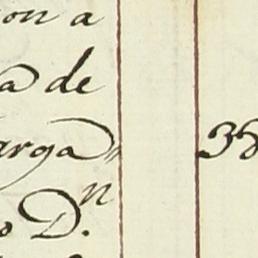 on a
a de
arga
38
o D.ⁿ